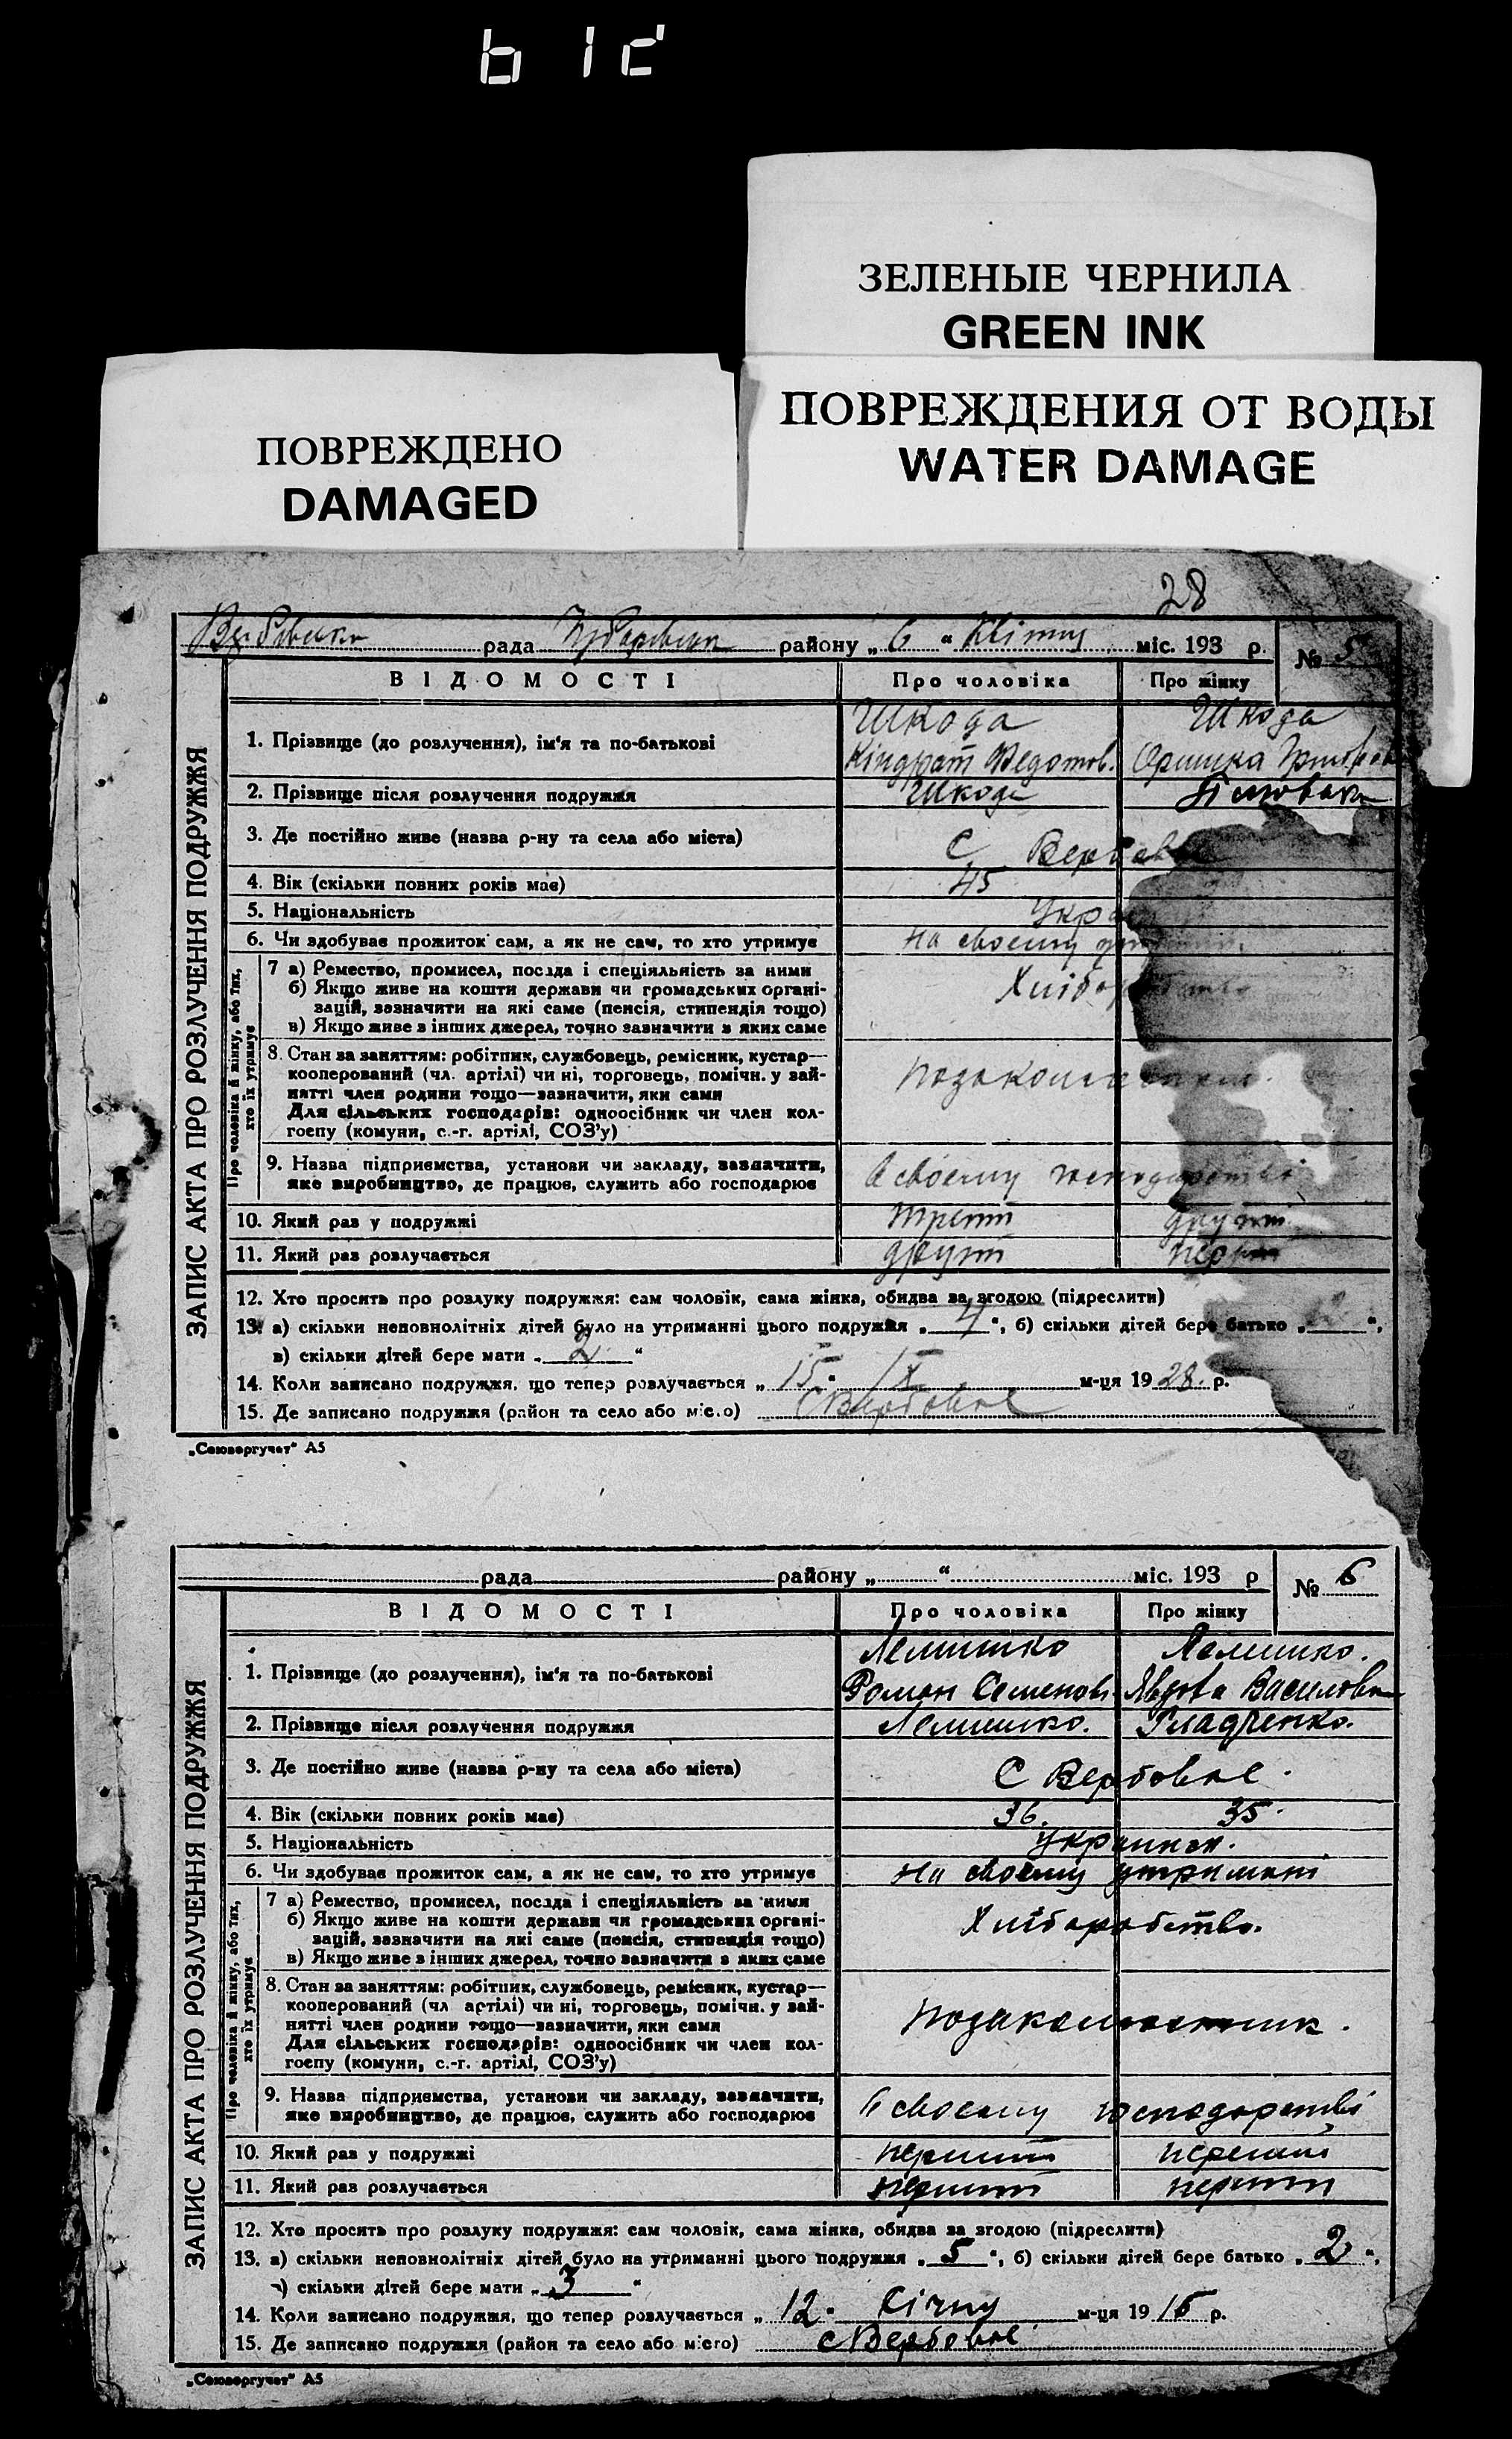 ЗЕЛЕНЫЕ ЧЕРНИЛА
GREEN INK
ПОВРЕЖДЕНИЯ ОТ ВОДЫ
WATER DAMAGE
ПОВРЕЖДЕНО
DAMAGED
28
рада району „ 6 “ Квітня міс. 193 р. № 5
ВІДОМОСТІ Про чоловіка Про жінку
ЗАПИС АКТА ПРО РОЗЛУЧЕННЯ ПОДРУЖЖЯ
1. Прізвище (до розлучення), ім'я та по-батькові Шкода Шкода
Кіндрат Федотов. Оришка
2. Прізвище після розлучення подружжя Шкода
3. Де постійно живе (назва р-ну та села або міста) С
4. Вік (скільки повних років має) 45
5. Національність
6. Чи здобуває прожиток сам, а як не сам, то хто утримує на своєму
Про чоловіка й жінку, або тих, хто їх утримує
7 а) Ремество, промисел, посада і спеціяльність за ними
б) Якщо живе на кошти держави чи громадських органі-
зацій, зазначити на які саме (пенсія, стипендія тощо)
в) Якщо живе з інших джерел, точно зазначити з яких саме
8. Стан за заняттям: робітник, службовець, ремісник, кустар—
кооперований (чл. артілі) чи ні, торговець, помічн. у зай-
нятті член родини тощо—зазначити, яки сами
Для сільських господарів: одноосібник чи член кол-
госпу (комуни, с.-г. артілі, СОЗ'у)
9. Назва підприємства, установи чи закладу, зазначити, В своєму господарстві
яке виробництво, де працює, служить або господарює
10. Який раз у подружжі третій другий
11. Який раз розлучається другий
12. Хто просить про розлуку подружжя: сам чоловік, сама жінка, обидва за згодою (підреслити)
13. а) скільки неповнолітніх дітей було на утриманні цього подружжя „ 4 “, б) скільки дітей бере батько „ 2 “,
в) скільки дітей бере мати „ 2 “
14. Коли записано подружжя, що тепер розлучається „ 15 “ IX м-ця 1928 р.
15. Де записано подружжя (район та село або місто) с Вербове
„Союзоргучет" А5
рада району „ “ міс. 193 р № 6
ВІДОМОСТІ Про чоловіка Про жінку
ЗАПИС АКТА ПРО РОЗЛУЧЕННЯ ПОДРУЖЖЯ
1. Прізвище (до розлучення), ім'я та по-батькові Лемишко Лемишко.
Роман Семенов. Явдоха Василовн
2. Прізвище після розлучення подружжя Лемишко. Гладченко.
3. Де постійно живе (назва р-ну та села або міста) С Вербове.
4. Вік (скільки повних років має) 36. 35.
5. Національність
6. Чи здобуває прожиток сам, а як не сам, то хто утримує на своєму утримані
Про чоловіка й жінку, або тих, хто їх утримує
7 а) Ремество, промисел, посада і спеціяльність за ними
б) Якщо живе на кошти держави чи громадських органі- Хліборобство.
зацій, зазначити на які саме (пенсія, стипендія тощо)
в) Якщо живе з інших джерел, точно зазначити з яких саме
8. Стан за заняттям: робітник, службовець, ремісник, кустар—
кооперований (чл артілі) чи ні, торговець, помічн. у зай-
нятті член родини тощо—зазначити, яки сами
Для сільських господарів: одноосібник чи член кол-
госпу (комуни, с.-г. артілі, СОЗ'у)
9. Назва підприємства, установи чи закладу, зазначити, В своєму господарстві
яке виробництво, де працює, служить або господарює
10. Який раз у подружжі перший перший
11. Який раз розлучається перший перший
12. Хто просить про розлуку подружжя: сам чоловік, сама жінка, обидва за згодою (підреслити)
13. а) скільки неповнолітніх дітей було на утриманні цього подружжя „ 5 “, б) скільки дітей бере батько „ 2 “,
в) скільки дітей бере мати „ 3 “
14. Коли записано подружжя, що тепер розлучається „ 12 “ Січня м-ця 1916 р.
15. Де записано подружжя (район та село або місто) с Вербове
„Союзоргучет" А5